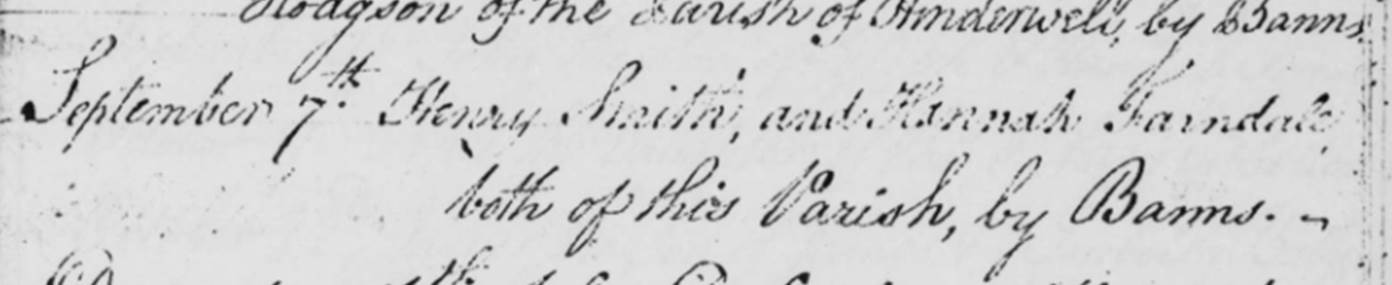 Hodgson of the Parish of Hinderwell, by Banns.
September 7.th Henry Smith, and Hannah Farndale
both of this Parish, by Banns. -